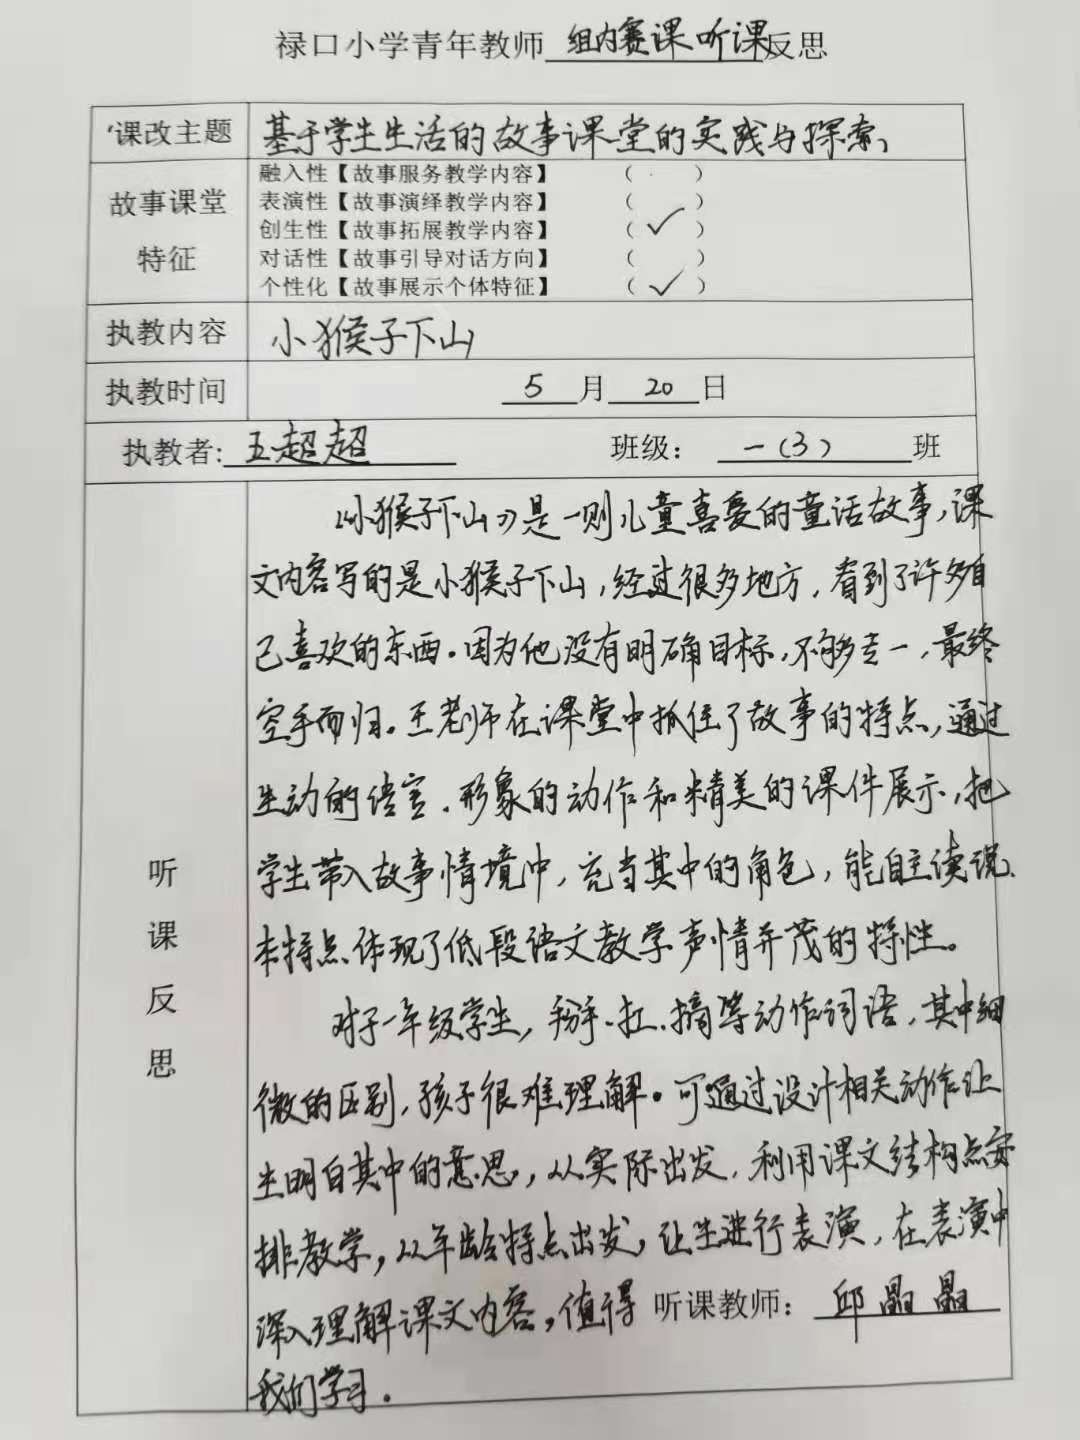 禄口小学青年教师组内赛课听课反思
课改主题 基于学生生活的故事课堂的实践与探索
故事课堂
特征
融入性【故事服务教学内容】 （ ）
表演性【故事演绎教学内容】 （ ）
创生性【故事拓展教学内容】 （ ✓ ）
对话性【故事引导对话方向】 （ ）
个性化【故事展示个体特征】 （ ✓ ）
执教内容 小猴子下山
执教时间 5月20日
执教者：王超超 班级：一（3）班
听课反思
《小猴子下山》是一则儿童喜爱的童话故事，课
文内容写的是小猴子下山，经过很多地方，看到了许多自
己喜欢的东西。因为他没有明确目标，不够专一，最终
空手而归。王老师在课堂中抓住了故事的特点，通过
生动的语言、形象的动作和精美的课件展示，把
学生带入故事情境中，充当其中的角色，能自主读说、
本特点体现了低段语文教学声情并茂的特性。
对于一年级学生，掰、扛、摘等动作词语，其中细
微的区别，孩子很难理解。可通过设计相关动作让
生明白其中的意思，从实际出发，利用课文结构点安
排教学，以年龄特点出发，让生进行表演，在表演中
深入理解课文内容，值得
我们学习。
听课教师：邱晶晶